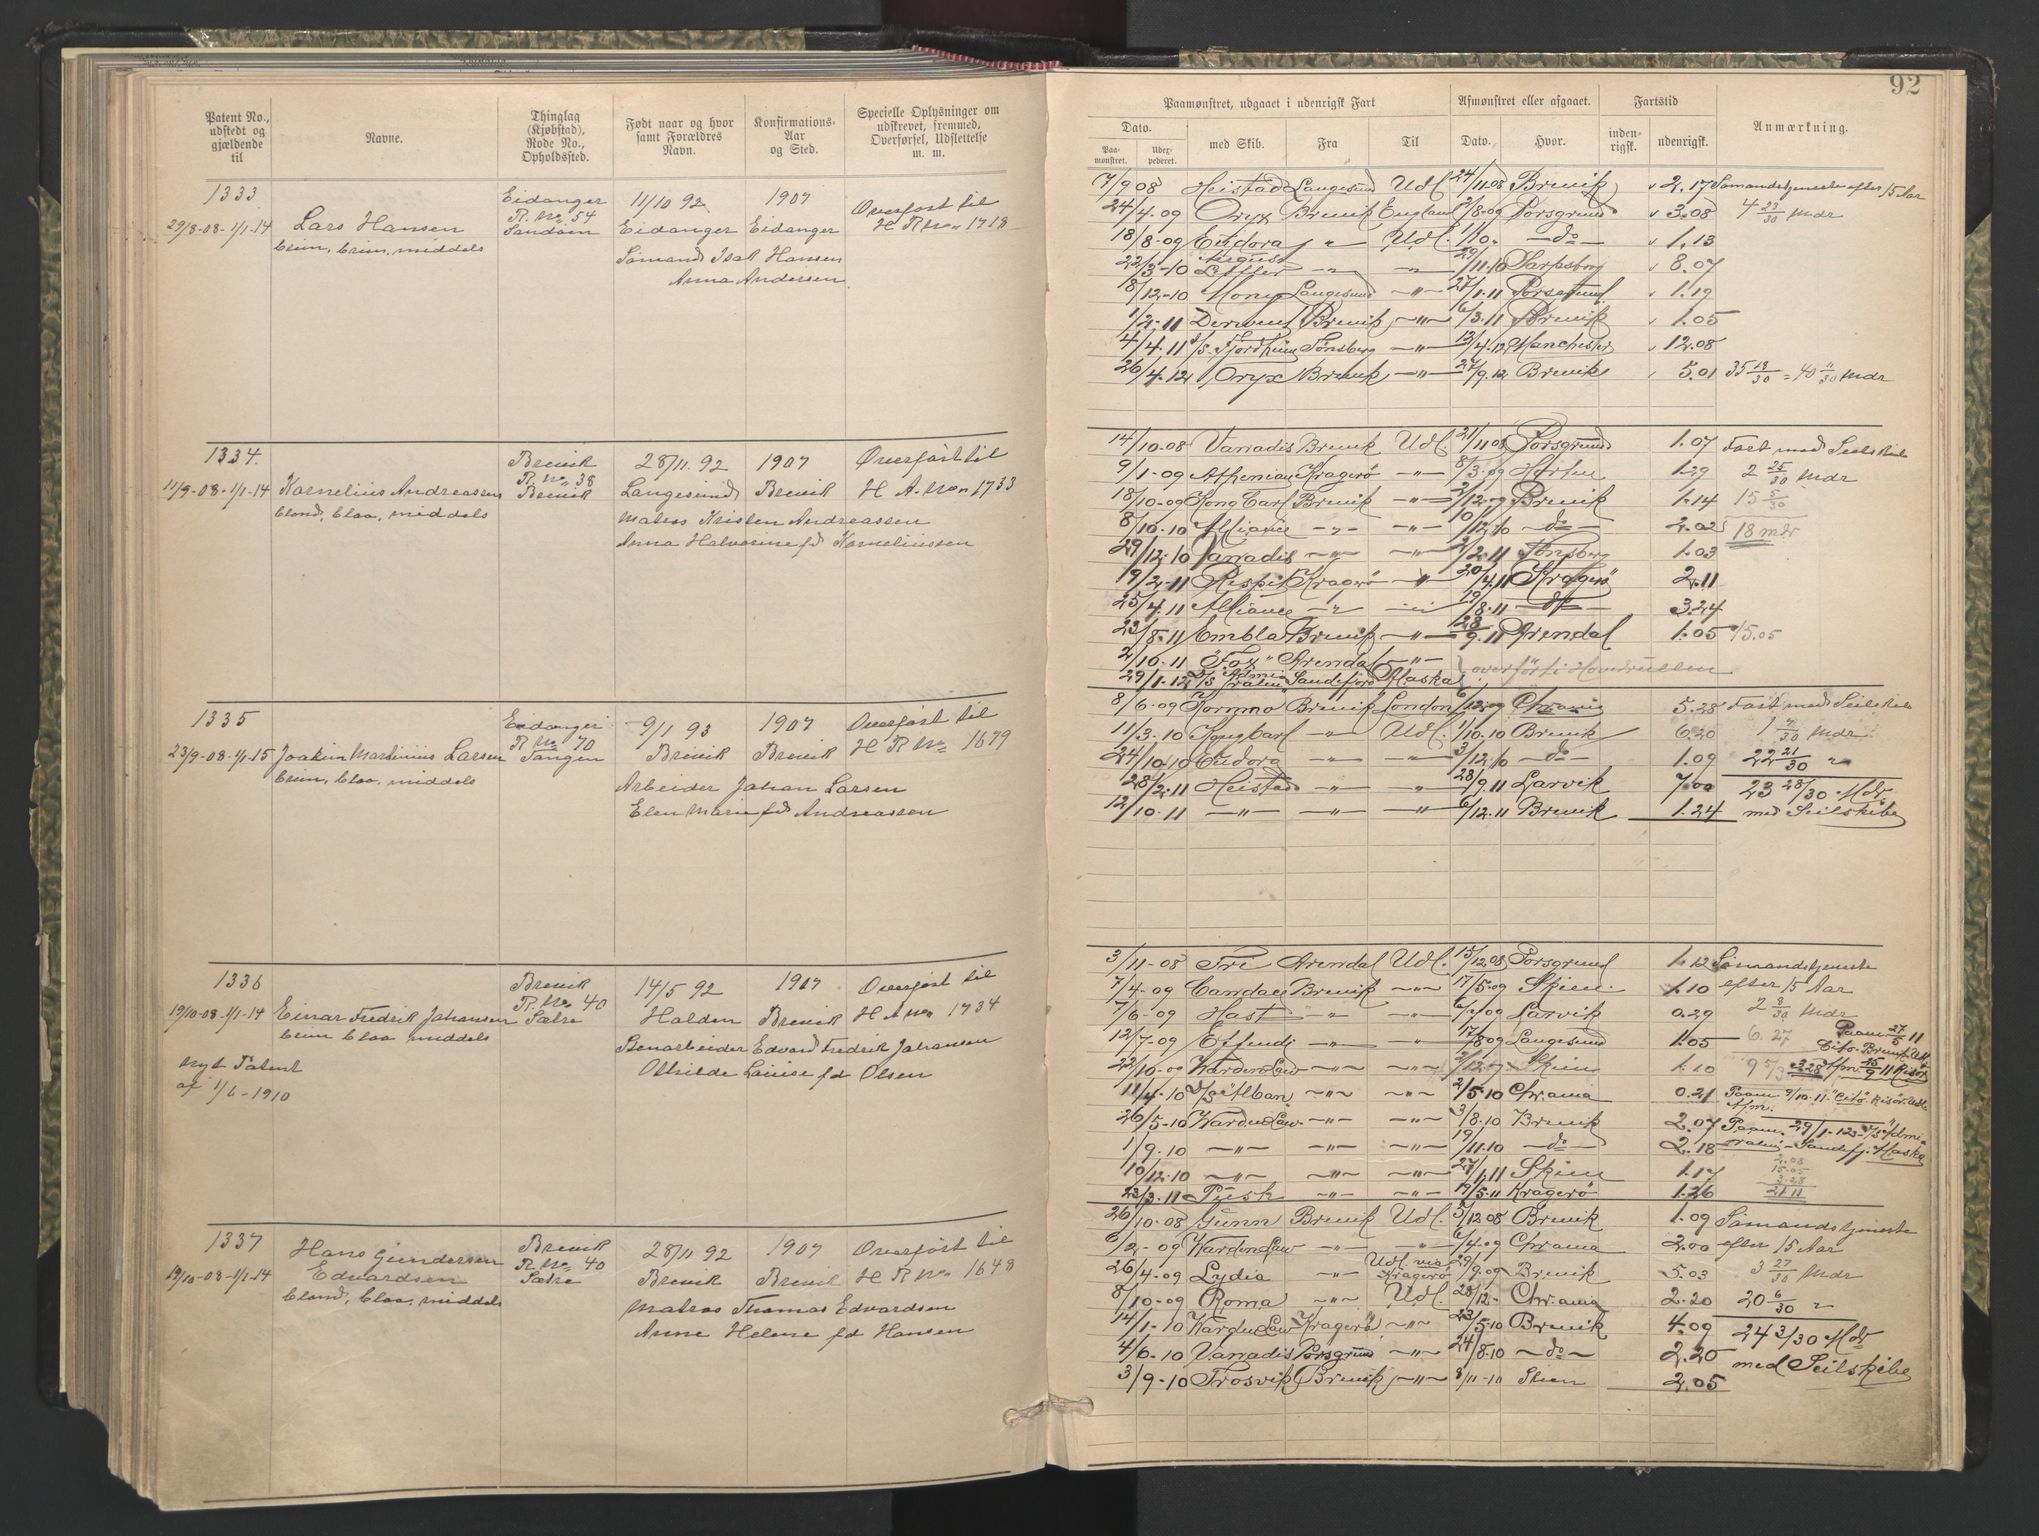 92
Patent No., udstedt og gjældende til
Navne.
Thinglag (Kjøbstad), Rode No., Opholdssted.
Født naar og hvor samt Forældres Navn.
Konfirmations-Aar og Sted.
Specielle Oplysninger om udskrevet, fremmed, Overførsel, Udslettelse m. m.
1333
29/8-08-1/1-14 Lars Hansen
Eidanger
R. No 54
Sandøen
11/10 92
Eidanger
1907
Eidanger
Overført til
H R No 1718
Sømand Isak Hansen
Anna Andersen
1334.
11/9-08-1/1-14 Kornelius Andreassen
blond, blaa, middels
Brevik
R. No 38
Brevik
28/11. 92
Langesund
1907
Brevik
Overført til
H A. No 1733
Matros Kristen Andreassen
Anna Halvorine fd Korneliussen
1335
23/9-08-1/1-15 Joakim Martinius Larsen
Eidanger
R No 70
Tangen
9/1 93
Brevik
1907
Brevik
Overført til
H R No 1679
Arbeider Johan Larsen
Elen Marie fd Andreassen
1336
19/10-08-1/1-14 Einar Fredrik Johansen
Nyt Patent
af 1/6-1910
Brevik
R No 40
Sætre
14/5 92
Halden
1907
Brevik
Overført til
H A No 1734
Stenarbeider Edvard Fredrik Johansen
Othilde Louise fd Olsen
1337
Hans Gundersen
19/10-08-1/1-14 Edvardsen
blond, blaa, middels
Brevik
R No 40
Sætre
28/11 92
Brevik
1907
Brevik
Overført til
H R No 1648
Matros Thomas Edvardsen
Anne Helene fd Hansen
Paamønstret, udgaaet i udenrigsk Fart
Afmønstret eller afgaaet.
Fartstid
Anmærkning.
Dato.
Paa-mønstret.
Udex-pederet.
med Skib.
Fra
Til
Dato.
Hvor.
inden-rigsk.
udenrigsk.
7/9 08 Heistad Langesund Udl. 24/11.08 Brevik 2.17 Sømandstjeneste efter 15 Aar
24/4-09 Oryx Brevik England 2/8-09 Porsgrund 3.08 4 23/30 Mdr
18/8-09 Eudora " Udl. 1/10 do 1.13
22/3-10 -"- -"- 29/11.10 Sarpsborg 8.07
8/12-10 Langesund -"- 27/1.11 Porsgrund 1.19
1/2-11 Derwent Brevik -"- 6/3.11 Brevik 1.05
4/4.11 Tønsberg -"- 13/4.12 Manchester 12.08
26/4.12 Oryx Brevik -"- 27/9.12 Brevik 5.01 35 18/30 = 40 11/30 Mdr
14/10-08 Vanadis Brevik Udl. 21/11 08 Porsgrund 1.07 Fart med Seilskib
9/1-09 Athenian Kragerø -"- 8/3.09 Horten 1.29 2 25/30 Mdr
18/10-09 Kong Carl Brevik -"- 2/12.09 Brevik 1.14 15 5/30
8/10.10 Alliance -"- -"- 10/12.10 do 2.02 18 mdr
29/12.10 Vanadis -"- -"- 2/2.11 Tønsberg 1.03
19/2-11 Respit Kragerø -"- 20/4.11 Kragerø 2.11
25/4.11 Alliance -"- -"- 19/8.11 do 3.24
23/8.11 Embla Brevik -"- 28/9.11 Arendal 1.05 15.05
2/10.11 "Fox" Arendal -"- overført i Hovedrullen
29/1-12 Sandefjord Alaska
8/6-09 Kornmo Brevik London 6/12.09 Chr.ania 5.28 Fart med Seilskib
11/3.10 Kong Carl -"- Udl. 1/10.10 Brevik 6.20
24/10.10 Eudora -"- -"- 3/12.10 do 1.09 22 21/30 "
28/2.11 Heistad -"- -"- 28/9.11 Larvik 7.00 23 28/30 Mdr
12/10.11 -"- -"- -"- 6/12.11 Brevik 1.24 med Seilskibe
3/11-08 Fri Arendal Udl. 15/12.08 Porsgrund 1.12 Sømandstjeneste
7/4.09 Brevik -"- 17/5.09 Skien 1.10 efter 15 Aar
7/6-09 Hast -"- -"- Larvik 0.29 2 8/30 Mdr
12/7-09 Effendi -"- -"- 17/8.09 Langesund 1.05 6.27
22/10-09 Varden Law -"- -"- Skien 1.10
11/4.10 D/S "Alban" -"- -"- 2/5.10 Chr.ania 0.21
26/5-10 Varden Law -"- -"- 3/8.10 Brevik 2.07
1/9.10 -"- -"- -"- 19/11.10 do 2.18
10/12.10 -"- -"- -"- 27/1.11 Skien 1.17
23/3.11 Pusk -"- -"- 19/5.11 Kragerø 1.26
26/10.08 Gunn Brevik Udl. 5/12.08 Brevik 1.09 Sømandstjeneste
6/2-09 Varden Law -"- -"- 6/4.09 Chr.ania 2.00 efter 15 Aar
26/4-09 Lydia -"- Udl. via Kragerø 29/9.09 Brevik 5.03 3 27/30 Mdr
8/10-09 Roma -"- Udl. 28/12- Chr.ania 2.20 20 6/30 "
14/1-10 Varden Law Kragerø -"- 23/5.10 Brevik 4.09 24 3/30 Mdr
4/6-10 Vanadis Porsgrund -"- 24/8.10 do 2.20 med Seilskibe
3/9-10 Frosvik Brevik -"- 8/11-10 Skien 2.05